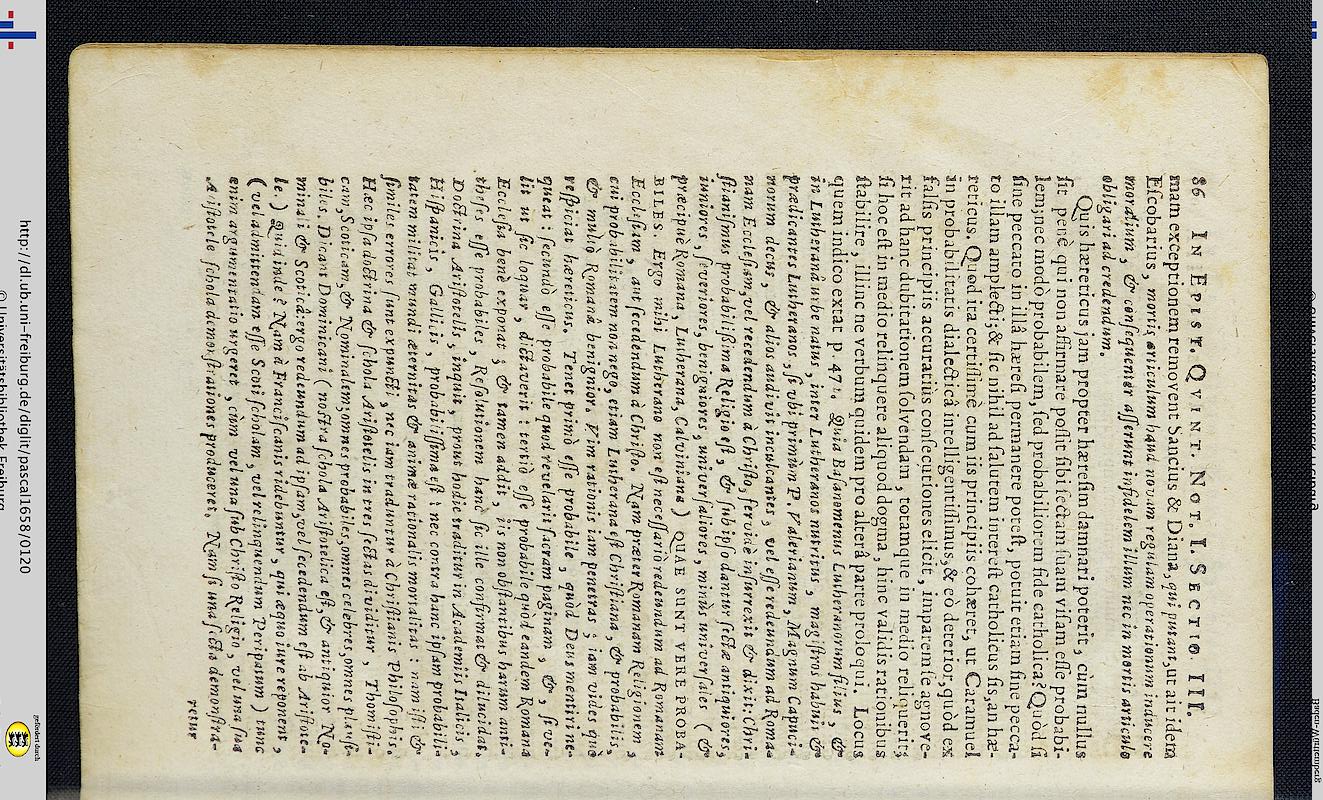 86 IN EPIST. QVINT. NOT. I. SECTIO. III.
mam exceptionem removent Sancius & Diana, qui putant, ut ait idem
Eſcobarius, mortis articulum haud novam regulam operationum inducere
moralium, & conſequenter aſſerunt infidelem illum nec in mortis articulo
obligari ad credendum.
Quis hæreticus jam propter hæreſim damnari poterit, cùm nullus
ſit penè qui non affirmare poſſit ſibi ſectam ſuam viſam eſſe probabi-
lem; nec modo probabilem, ſed probabiliorem fide catholica? Quòd ſi
ſine peccato in illâ hæreſi permanere poteſt, potuit etiam ſine pecca-
to illam amplecti; & ſic nihil ad ſalutem intereſt catholicus ſis, an hæ-
reticus. Quod ita certiſſimè cum iis principiis cohæret, ut Caramuel
in probabilitatis dialecticâ intelligentiſſimus, & eò deterior, quod ex
falſis principiis accuratius conſecutiones elicit, imparem ſe agnove-
rit ad hanc dubitationem ſolvendam, totamque in medio reliquerit;
ſi hoc eſt in medio relinquere aliquod dogma, hinc validis rationibus
ſtabilire, illinc ne verbum quidem pro alterâ parte proloqui. Locus
quem indico extat p. 471. Quia Baſanomenus Lutheranorum filius, &
in Lutheranâ urbe natus, inter Lutheranos nutritus, magiſtros habuit &
prædicantes Lutheranos; ſi ubi primùm P. Valerianum, Magnum Capuci-
norum decus, & alios audivit inculcantes, vel eſſe redeundum ad Roma-
nam Eccleſiam, vel recedendum à Chriſto, fervidè inſurrexit & dixit; Chri-
ſtianiſmus probabiliſſima Religio eſt, & ſub ipſo dantur ſectæ antiquiores,
iuniores, ſeveriores, benigniores, univerſaliores, minùs univerſales (&
præcipuè Romana, Lutherana, Calviniana) QUAE SUNT VERE PROBA-
BILES. Ergo mihi Lutherano non eſt neceſſariò redeundum ad Romanam
Eccleſiam, aut ſecedendum à Chriſto. Nam præter Romanam Religionem,
cui probabilitatem non nego, etiam Lutherana eſt Chriſtiana, & probabilis,
& multò Romanâ benignior. Vim rationis iam penetras; iam vides quo
reſpiciat hæreticus. Tenet primò eſſe probabile, quòd Deus mentiri ne-
queat: ſecundò eſſe probabile quod revelarit ſacram paginam, &, ſi ve-
lit ut ſic loquar, dictaverit: tertiò eſſe probabile quòd eandem Romana
Eccleſia benè exponat; & tamen addit, iis non obſtantibus harum anti-
theſes eſſe probabiles, Reſolutionem hanc ſic ille confirmat & dilucidat.
Doctrina Ariſtotelis, inquit, prout hodie traditur in Academiis Italicis,
Hiſpanicis, Gallicis, probabiliſſima eſt: nec contra hanc ipſam probabili-
tatem militat mundi æternitas & animæ rationalis mortalitas: nam iſti &
ſimiles errores ſunt expuncti, nec iam traduntur à Chriſtianis Philoſophis.
Hæc ipſa doctrina & ſchola Ariſtotelis in tres ſectas dividitur, Thomiſti-
cam, Scoticam, & Nominalem; omnes probabiles, omnes celebres, omnes plauſi-
biles. Dicant Dominicani (noſtra ſchola Ariſtotelica eſt, & antiquior No-
minali & Scoticâ: ergo redeundum ad ipſam, vel ſecedendum eſt ab Ariſtote-
le) Quid inde? Nam à Franciſcanis ridebuntur, qui æquo iure reponent,
(vel admittendam eſſe Scoti ſcholam, vel relinquendum Peripatum) tunc
enim argumentatio urgeret, cùm vel una ſub Chriſto Religio, vel una ſub
Ariſtotele ſchola demonſtrationes produceret. Nam ſi una ſecta demonſtra-
retur
http://dl.ub.uni-freiburg.de/diglit/pascal1658/0120
© Universitätsbibliothek Freiburg
gefördert durch